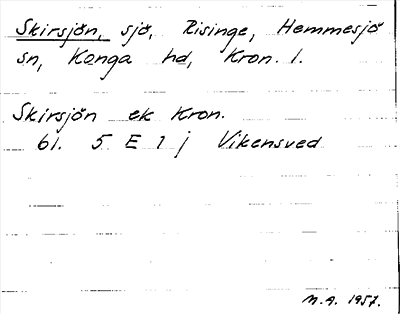 Skirsjön, sjö, Risinge, Hemmesjö
sn, Konga hd, Kron. l.
Skirsjön ek Kron.
61. 5 E 1 j Vikensved
M.A. 1957.